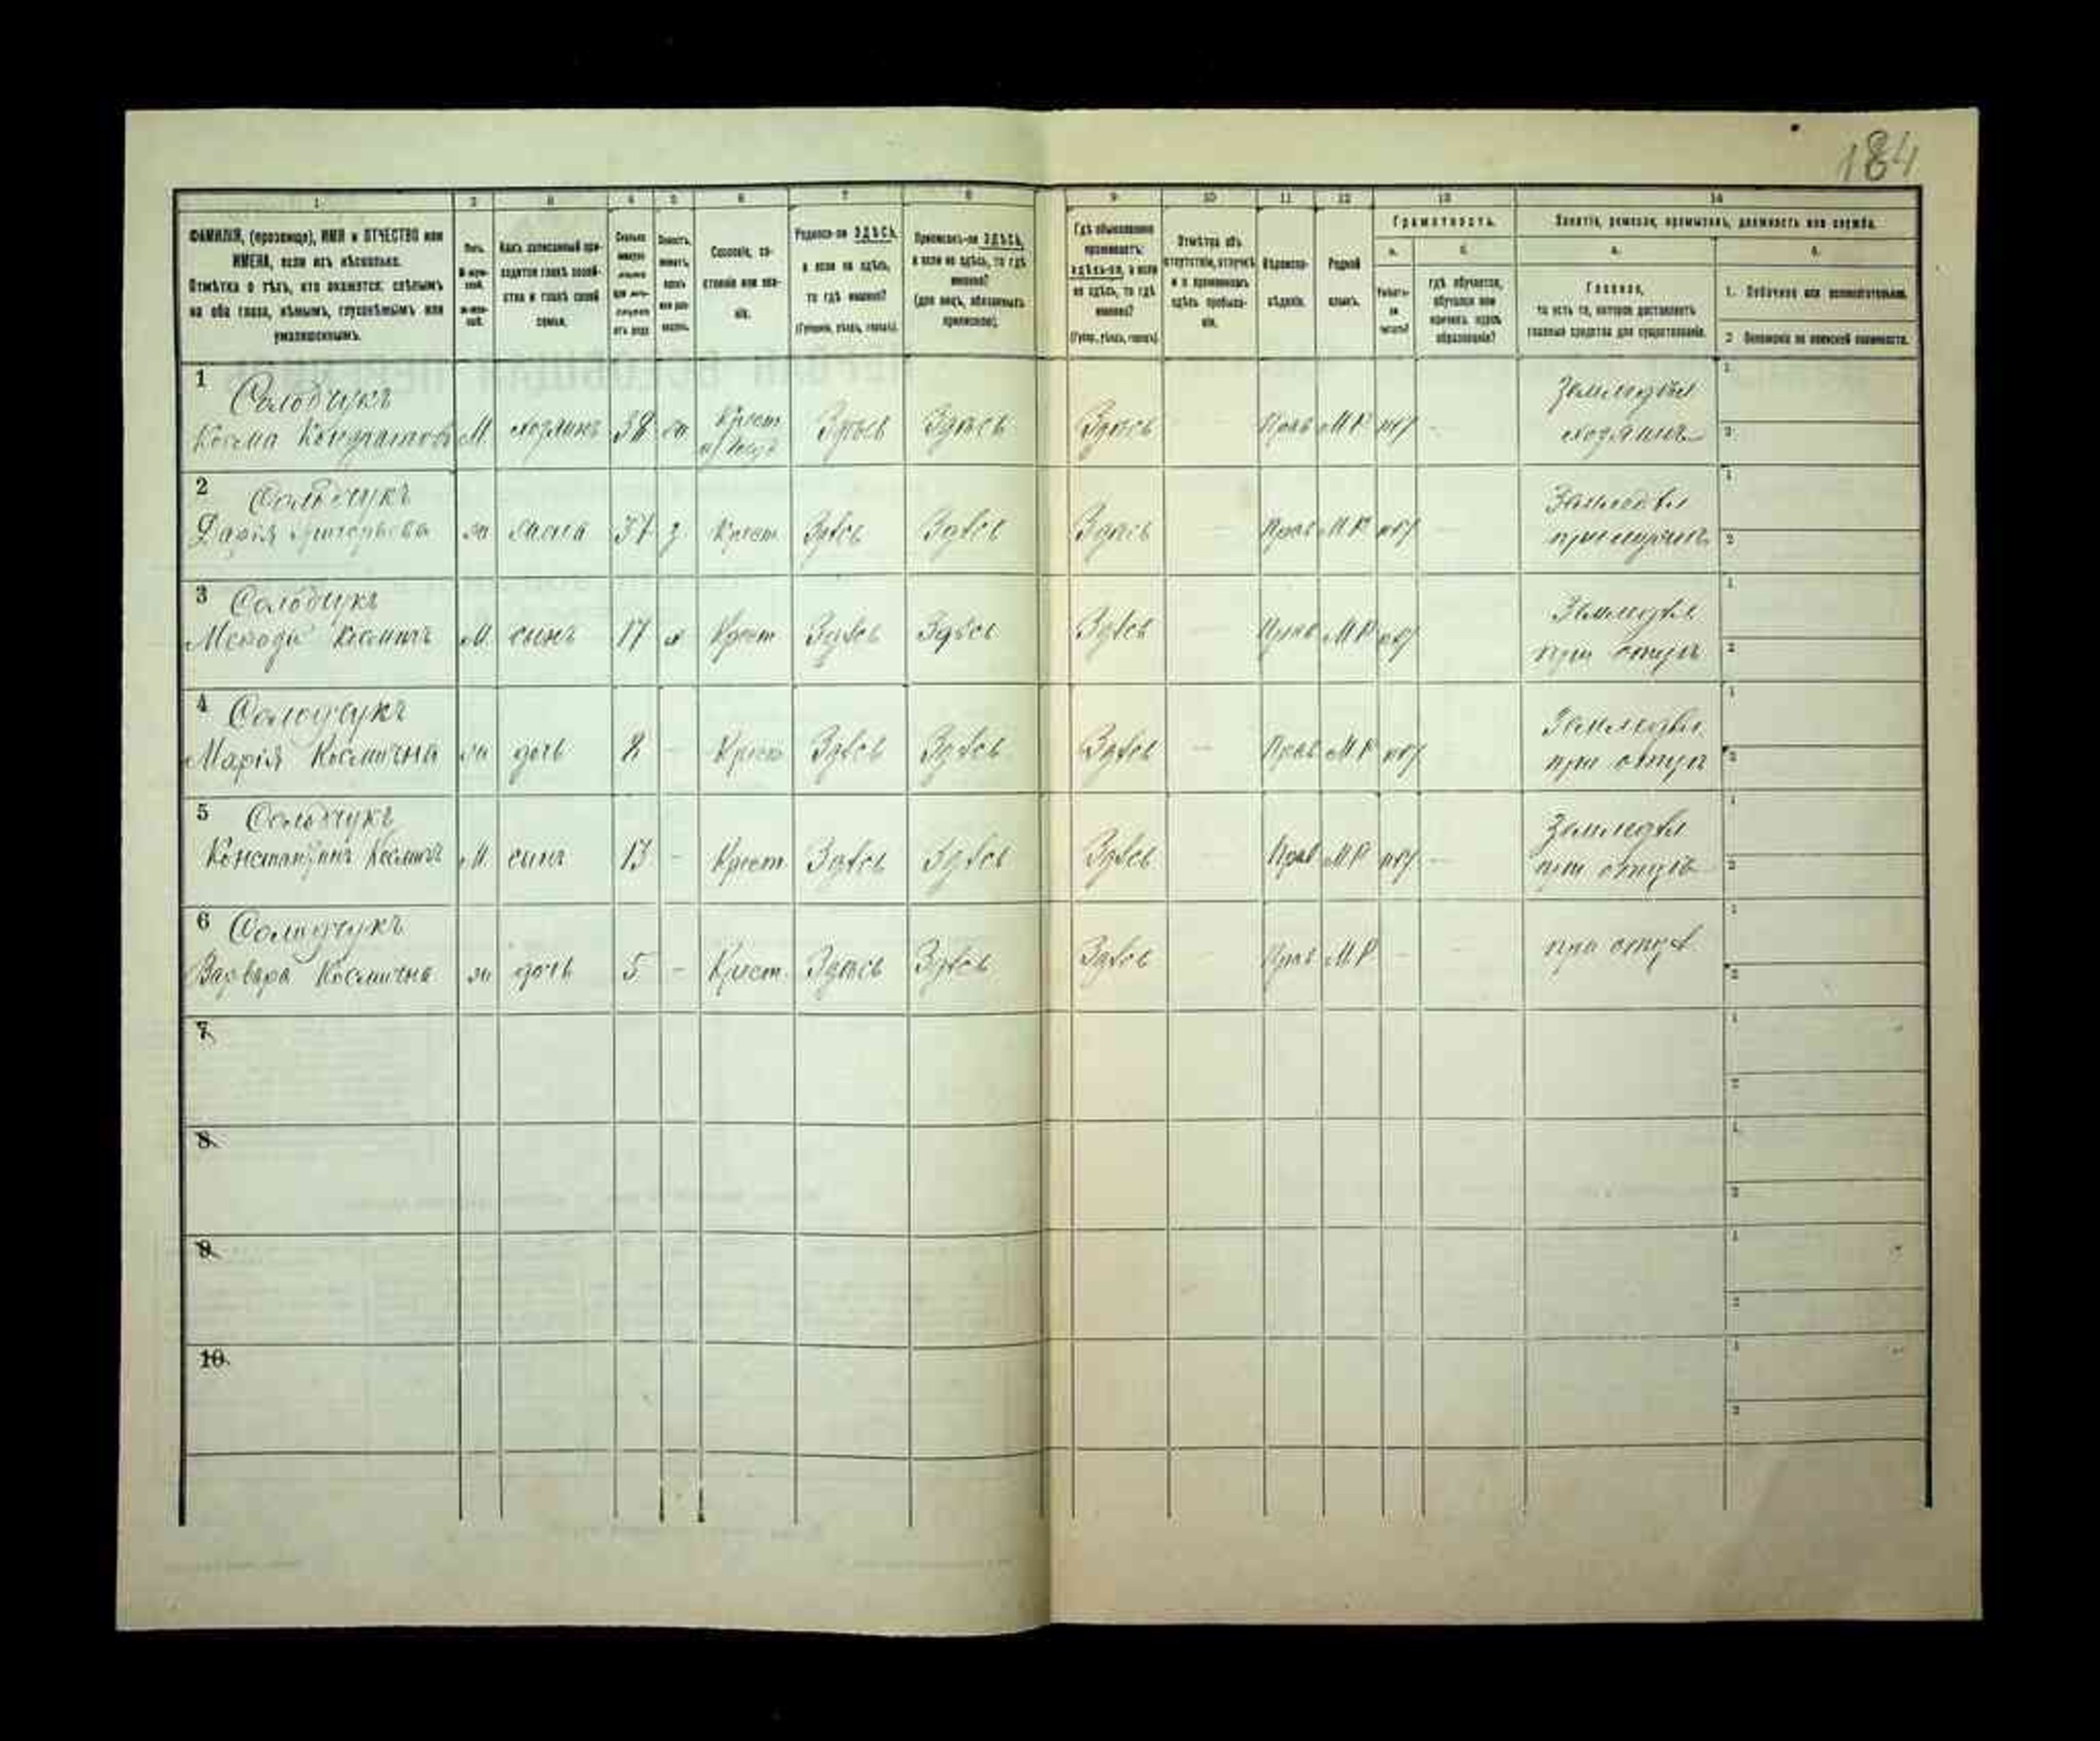 184
1 2 3 4 5 6 7 8 9 10 11 12 13 14
ФАМИЛІЯ, (прозвище), ИМЯ и ОТЧЕСТВО или
ИМЕНА, если ихъ нѣсколько.
Отмѣтка о тѣхъ, кто окажется: слѣпымъ
на оба глаза, нѣмымъ, глухонѣмымъ или
умалишеннымъ.
Полъ.
Какъ записанный при-
ходится главѣ хозяй-
ства и главѣ своей
семьи.
Сословіе, со-
стояніе или зва-
ніе.
Родился-ли ЗДѢСЬ,
а если не здѣсь,
то гдѣ именно?
(Губернія, уѣздъ, городъ).
Приписанъ-ли ЗДѢСЬ,
а если не здѣсь, то гдѣ
именно?
(для лицъ, обязанныхъ
припискою).
Гдѣ обыкновенно
проживаетъ:
здѣсь-ли, а если
не здѣсь, то гдѣ
именно?
(Губер., уѣздъ, городъ).
Отмѣтка объ
отсутствіи, отлучкѣ
и о временномъ
здѣсь пребыва-
ніи.
Вѣроиспо-
вѣданіе.
Родной
языкъ.
Грамотность.
а.
Умѣетъ-
ли
читать?
б.
гдѣ обучается,
обучался или
кончилъ курсъ
образованія?
Занятіе, ремесло, промыселъ, должность или служба.
а.
Главное,
то есть то, которое доставляетъ
главныя средства для существованія.
б.
1. Побочное или вспомогательное.
2. Положеніе по воинской повинности.
1 Солодчукъ
Косма Кондратовъ М. хозяинъ 38 Крест Здѣсь Здѣсь Здѣсь Прав М Р нѣт Земледѣл
хозяинъ
2 Солодчукъ
Дарія Григорьева ж жена 37 з Крест Здѣсь Здѣсь Здѣсь Прав М Р нѣт Земледѣл
при мужѣ
3 Солодчукъ
Космичъ М сынъ 17 х Крест Здѣсь Здѣсь Здѣсь Прав М Р нѣт Земледѣл
при отцѣ
4 Солодчукъ
Марія Космична ж дочь 8 - Крест Здѣсь Здѣсь Здѣсь Прав М Р нѣт Земледѣл
при отцѣ
5 Солодчукъ
Константинъ Космичъ М. сынъ 13 - Крест Здѣсь Здѣсь Здѣсь Прав М Р нѣт Земледѣл
при отцѣ
6 Солодчукъ
Варвара Космична ж дочь 5 - Крест. Здѣсь Здѣсь Здѣсь Прав М Р - при отцѣ
7.
8.
9.
10.